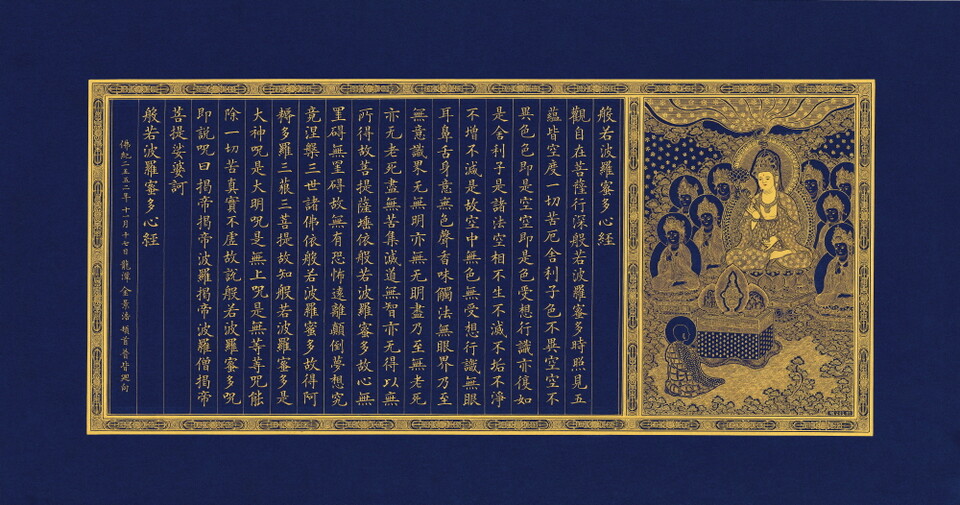 般若波羅蜜多心経
觀自在菩薩行深般若波羅蜜多時照見五
蘊皆空度一切苦厄舍利子色不異空空不
異色色即是空空即是色受想行識亦復如
是舍利子是諸法空相不生不滅不垢不淨
不增不滅是故空中無色無受想行識無眼
耳鼻舌身意無色聲香味觸法無眼界乃至
無意識界无無明亦无無明盡乃至無老死
亦无老死盡無苦集滅道無智亦无得以無
所得故菩提薩埵依般若波羅蜜多故心無
罣碍無罣碍故無有恐怖遠離顛倒夢想究
竟涅槃三世諸佛依般若波羅蜜多故得阿
耨多羅三藐三菩提故知般若波羅蜜多是
大神呪是大明呪是無上呪是無等等呪能
除一切苦真實不虛故說般若波羅蜜多呪
即說呪曰揭帝揭帝波羅揭帝波羅僧揭帝
菩提娑婆訶
佛紀二五五二年十一月十七日龍潭金景浩頓首普皆迴向